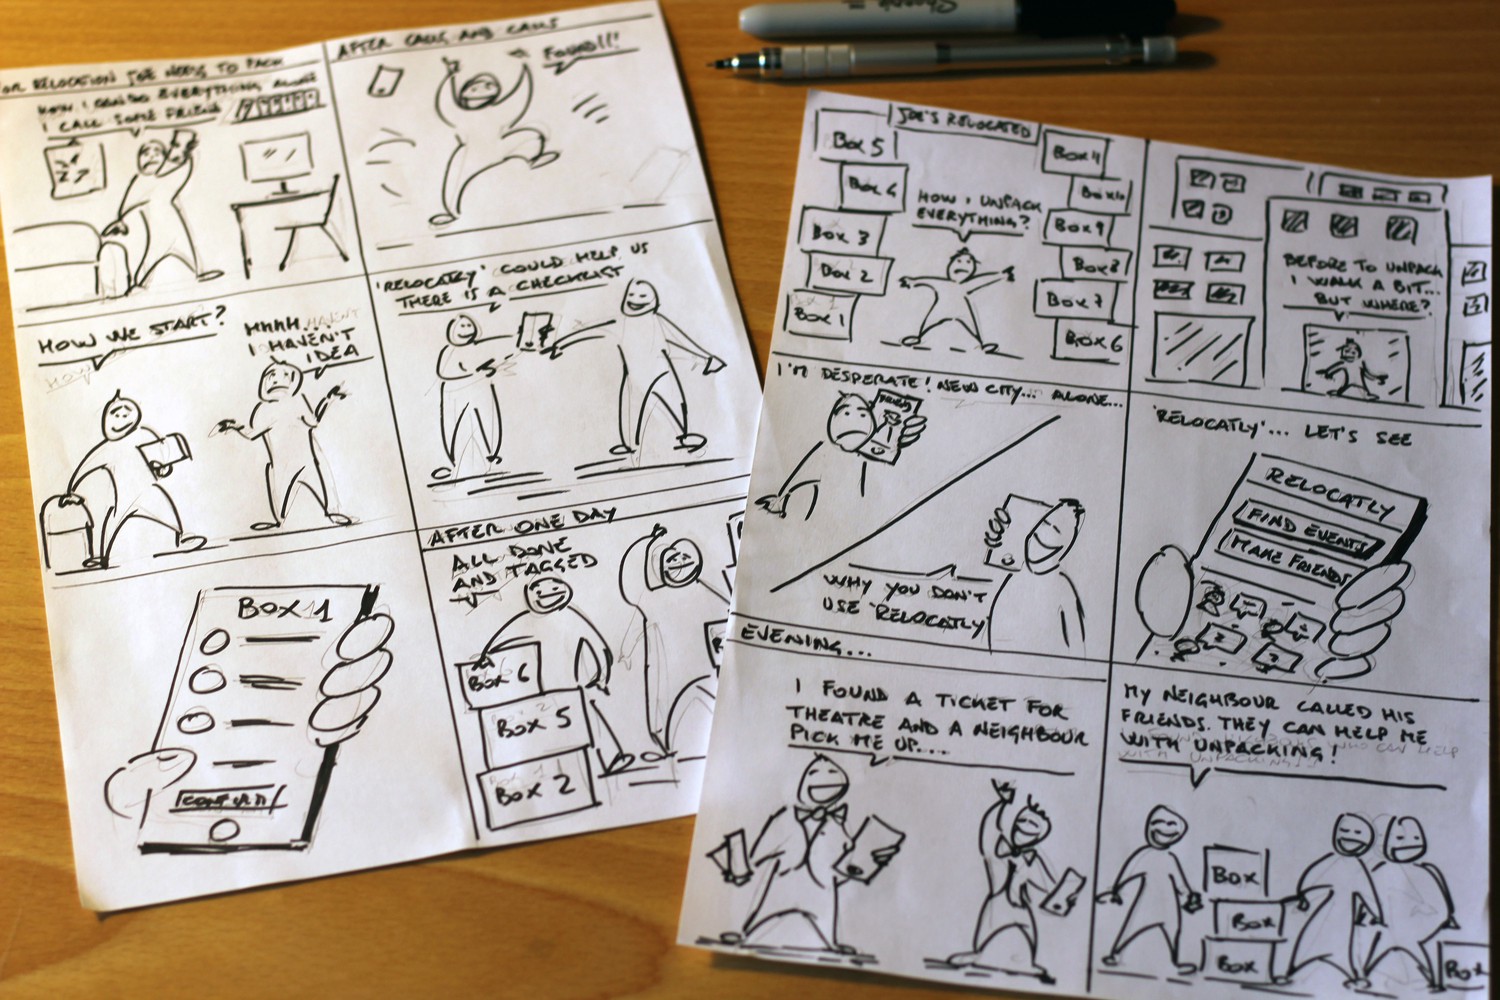 FOR RELOCATION JOE NEEDS TO PACK
HOW I CAN DO EVERYTHING ALONE
I CALL SOME FRIEND
AFTER CALLS AND CALLS
FOUND!!!
HOW WE START?
HOW
HMMM...
I HAVEN'T
IDEA
'RELOCATLY' COULD HELP US
THERE IS A CHECKLIST
BOX 1
AFTER ONE DAY
ALL DONE
AND TAGGED
BOX 6
BOX 5
BOX 2
JOE'S RELOCATED
BOX 5
BOX 4
BOX 3
BOX 2
BOX 1
HOW I UNPACK
EVERYTHING?
BOX 11
BOX 10
BOX 9
BOX 8
BOX 7
BOX 6
BEFORE TO UNPACK
I WALK A BIT...
BUT WHERE?
I'M DESPERATE! NEW CITY... ALONE...
WHY YOU DON'T
USE 'RELOCATLY'
'RELOCATLY'... LET'S SEE
RELOCATLY
FIND EVENTS
MAKE FRIENDS
EVENING...
I FOUND A TICKET FOR
THEATRE AND A NEIGHBOUR
PICK ME UP....
MY NEIGHBOUR CALLED HIS
FRIENDS. THEY CAN HELP ME
WITH UNPACKING!
WHO CAN HELP
WITH UNPACKING
BOX
BOX
BOX
BOX